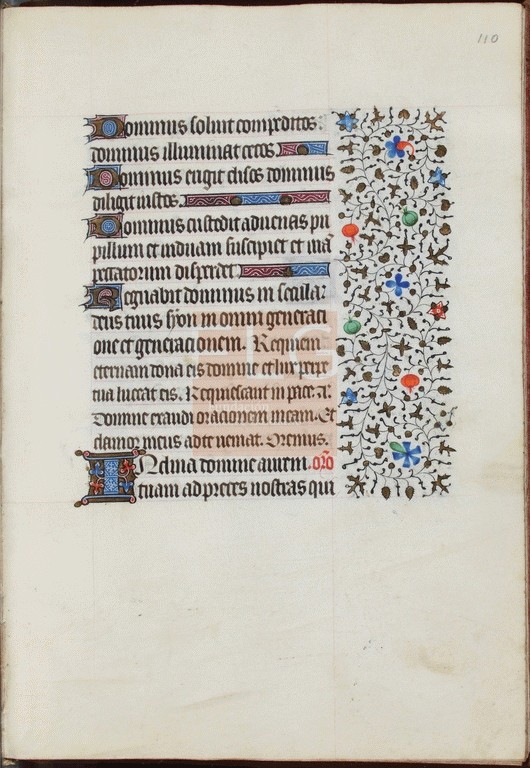 110
Dominus soluit compeditos:
dominus illuminat cecos
Dominus erigit elisos dominus
diligit iustos
Dominus custodit aduenas pu
pillum et uiduam suscipiet et uia
peccatorum disperdet
Regnabit dominus in secula:
deus tuus syon in omni generati
one et generacionem. Requiem
eternam dona eis domine et lux perpe
tua luceat eis. Requiescant in pace. A.
Domine exaudi oracionem meam. Et
clamor meus ad te ueniat. Oremus.
Inclina domine aurem. oro
tuam ad preces nostras qui
FLG